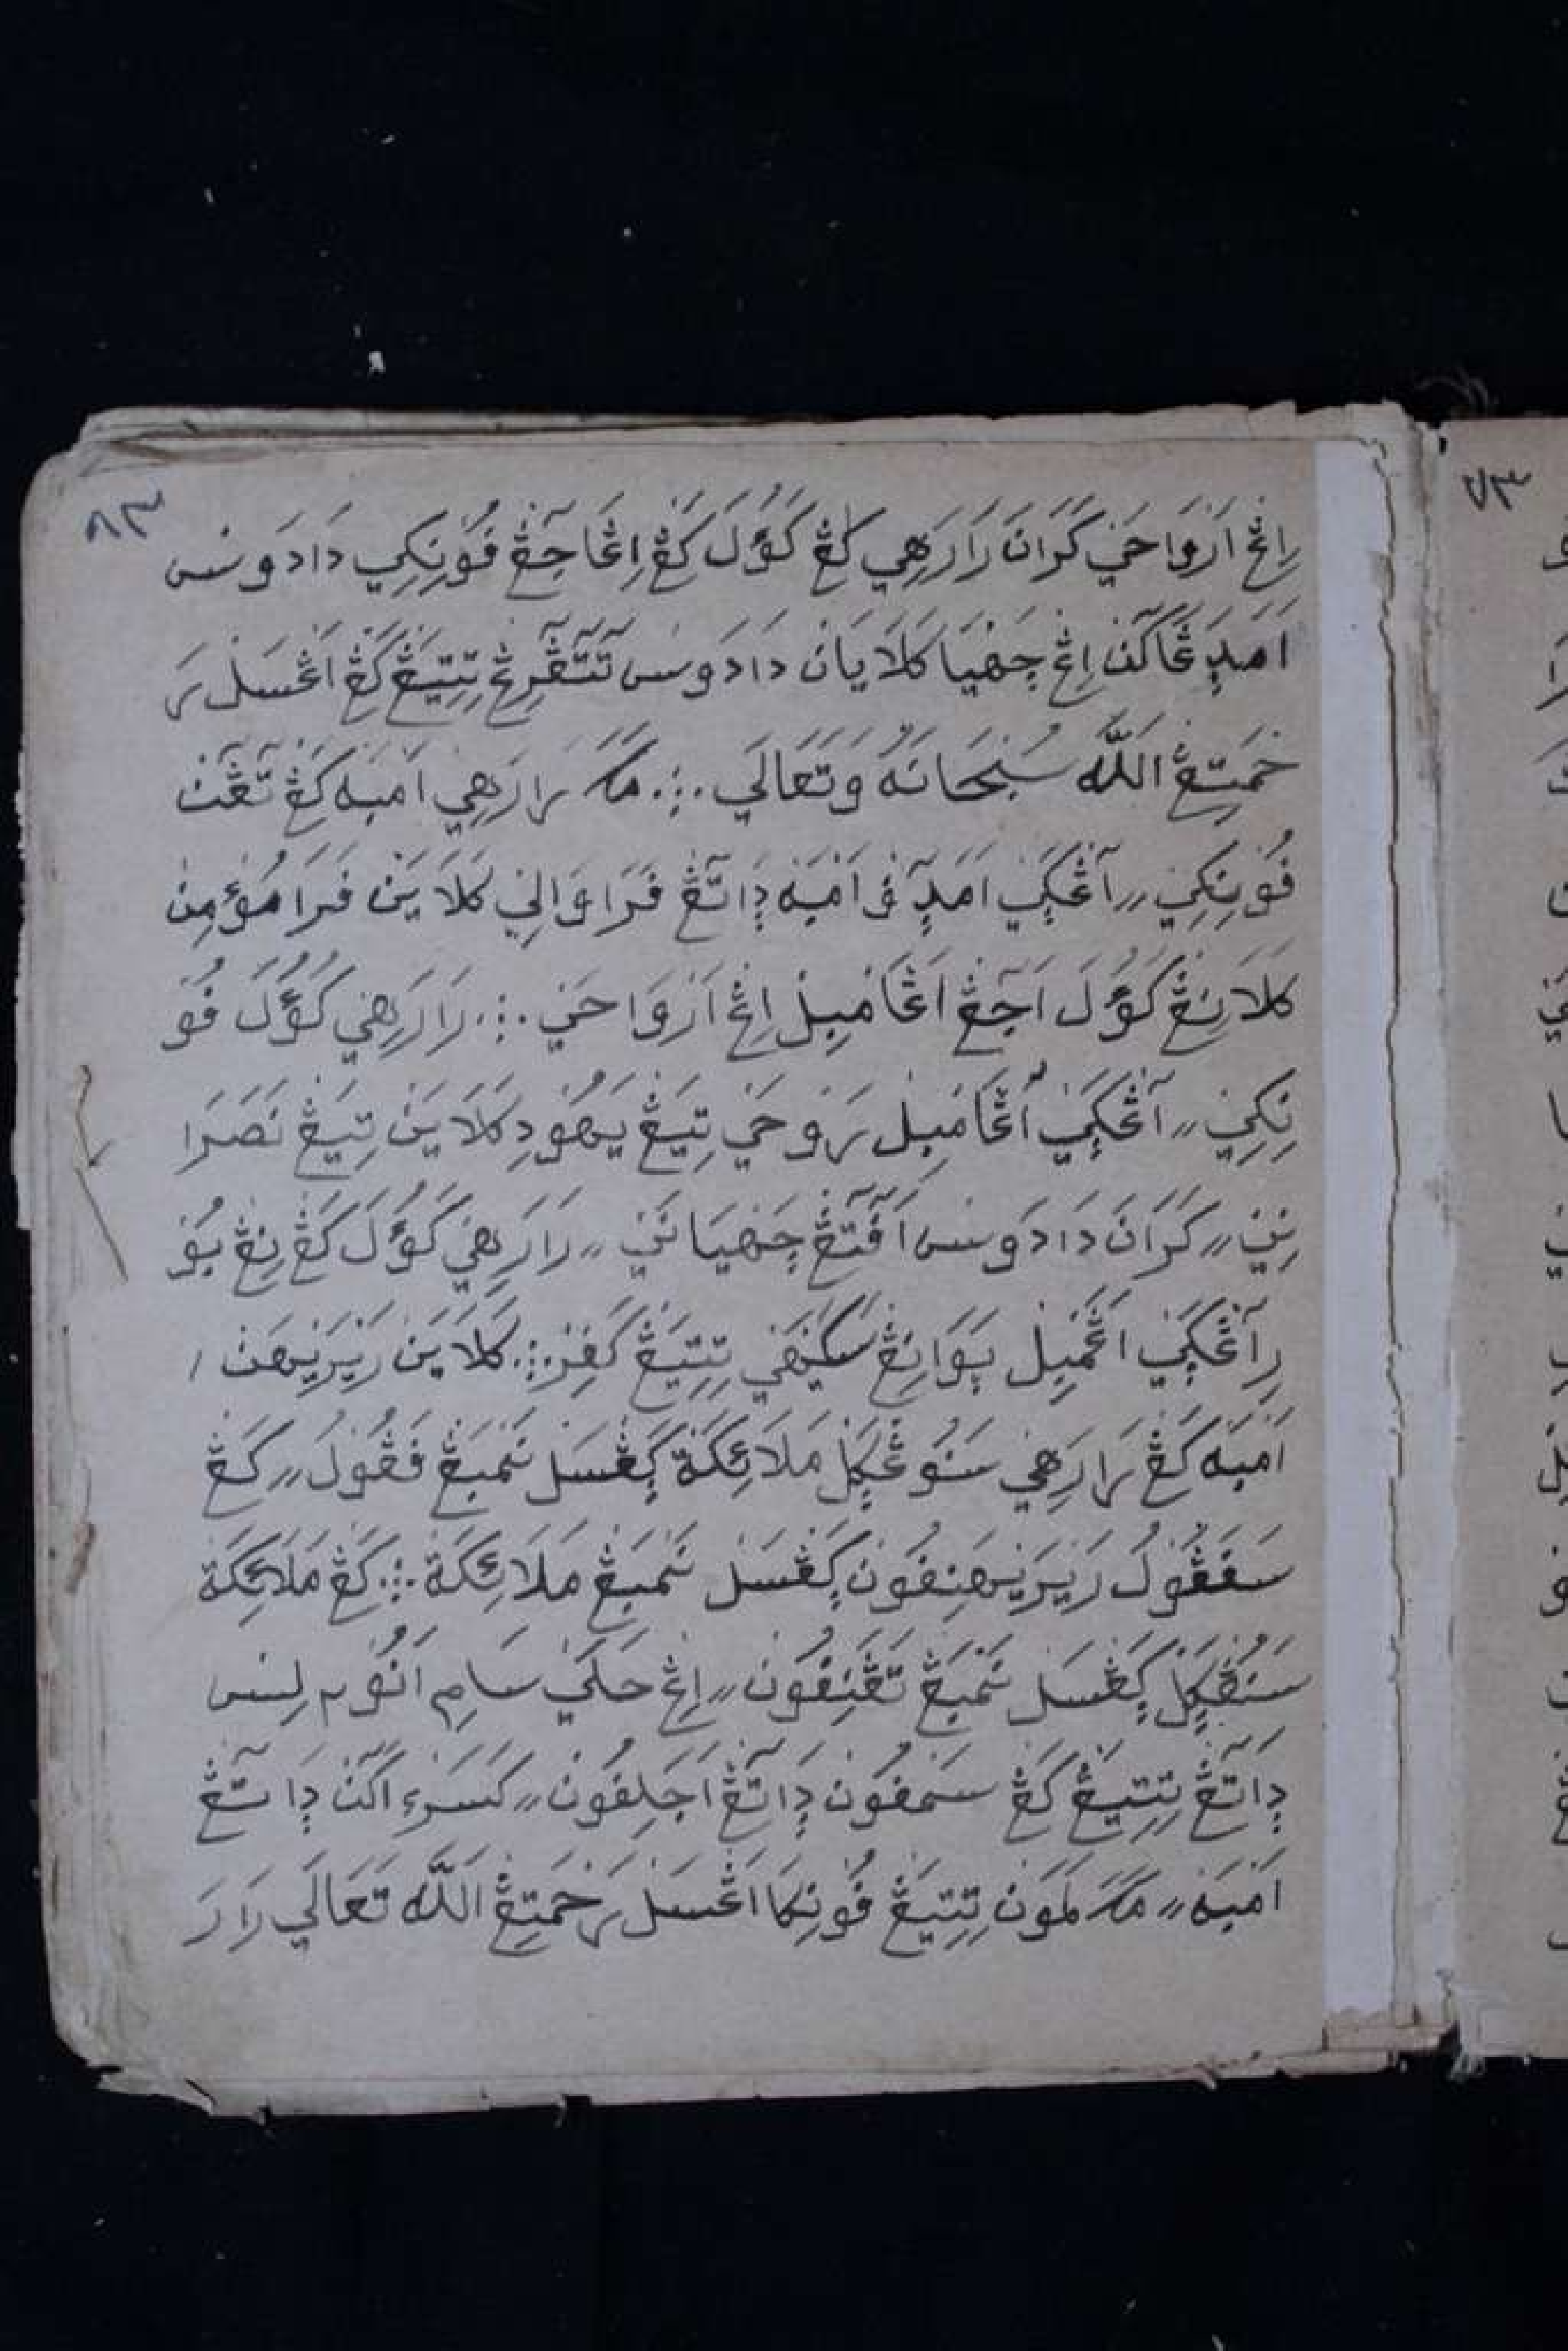 ٨٣
٧٣
اِڠْ اَرْوَاحَيْ كَرَانَ رَارَهِي كَڠْ كَوُلَ كَڠْ اِڠَاجِڠْ فُوْنِكِي دَادَوسْ
اَمَدِڠَاكَنْ اِڠْ جَهْيَا كَلَايَانْ دَادَوسْ تَتَڤْرِڠْ تِتِيَڠْ كَڠْ اَڠْسَلْ رَ
حْمَتِڠْ اللّٰه سُبْحَانَهُ وَتَعَالَي ؞ مَكَ رَارَهِي اَمْبَه كَڠْ تَڠَنْ
فُوْنِكِي ,, اَڠْكَنِي اَمَدِ فَ اَمْبَه دِاتَڠْ فَرَا وَالِي كَلَايَنْ فَرَا مُؤْمِنْ
كَلَانِڠْ كَوُلَ اَجِڠْ اَڠَامْبِلْ اِڠْ اَرْوَاحَيْ ؞ رَارَهِيْ كَوُلَ فُوْ
نِكِيْ ,, اَڠْكَنِي اَڠَامْبِلْ رَوحَيْ تِيَڠْ يَهُوْدِ كَلَايَنْ تِيَڠْ نَصَرَا
نِيْ ,, كَرَانَ دَادَوسْ اَفَتَڠْ جَهْيَانَيْ ,, رَارَهِيْ كَوُلَ كَڠْ نِڠْ بُوْ
رِ اَڠْكَنِي اَڠْمْبِلْ پَوَانِڠْ سَكَيْهَيْ تِتِيَڠْ كَفِرْ ؞ كَلَايَنْ رَيْرَيْهَنْ
اَمْبَه كَڠْ رَارَهِيْ سَنُوڠْكِلْ مَلَائِكَةْ كَڠْسَلْ نَمْبَڠْ فَڤُوْلُ ,, كَڠْ
سَفَڤُوْلُ رَيْرَيْهَنِفُوْن كَڠْسَلْ نَمْبَڠْ مَلَائِكَةْ ؞ كَڠْ مَلَائِكَةْ
سَنُڠْكِلْ كَڠْسَلْ نَمْبَڠْ تَڠَنِفُوْن ,, اِڠْ حَلَيْ سَامِ اَنُوْم لِسْ
دِاتَڠْ تِتِيَڠْ كَڠْ سَمْفُوْن دِاتَڠْ اَجَلِفُوْن ,, كَسَرَءِ اَكَنْ دِاتَڠْ
اَمْبَه ,, مَكَ لَمَوْن تِتِيَڠْ فُوْنِكَا اَڠْسَلْ رَحْمَتِڠْ اللّٰه تَعَالَي رَارَ